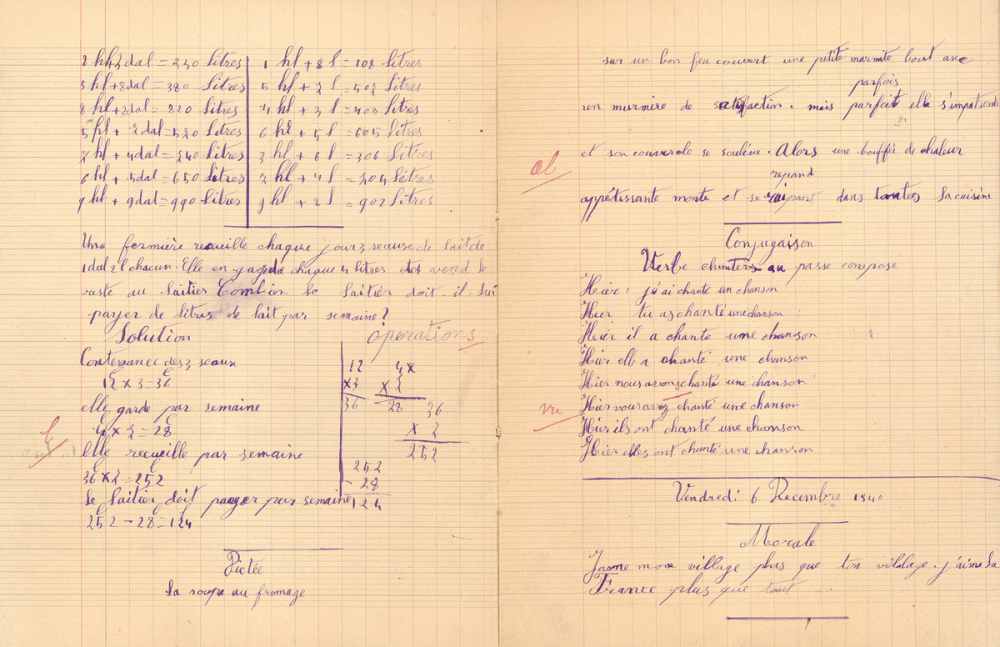 2 hl + 3 dal = 230 litres
3 hl + 8 dal = 380 litres
8 hl + 2 dal = 820 litres
5 hl + 2 dal = 520 litres
2 hl + 4 dal = 240 litres
6 hl + 5 dal = 650 litres
9 hl + 9 dal = 990 litres
1 hl + 8 l = 108 litres
5 hl + 2 l = 502 litres
4 hl + 3 l = 403 litres
6 hl + 5 l = 605 litres
3 hl + 6 l = 306 litres
2 hl + 4 l = 204 litres
9 hl + 2 l = 902 litres
Une fermière recueille chaque jour 3 seaux de lait de
1 dal 2 l chacun. Elle en garde chaque 4 litres et vend le
reste au laitier Combien le laitier doit-il lui
payer de litres de lait par semaine?
Solution
opérations
Contenance des 3 seaux
12 x 3 = 36
elle garde par semaine
4 x 7 = 28
Elle recueille par semaine
36 x 7 = 252
Le laitier doit payer par semaine
252 - 28 = 124
12
x3
36
4x
x 7
28
36
x 7
252
252
- 28
124
Dictée
La soupe au fromage
sur un bon feu couvert une petite marmite bout avec
parfois
un murmire de satisfaction. mais parfait elle s'impatiente
et son couvercle se soulève. Alors une bouffée de chaleur
répand
appétissante monte et se dans toutes la cuisine
Conjugaison
Verbe chanter au passe compose
Heier: j'ai chante un chanson
Hier tu as chanté une chanson
Hier il a chante une chanson
Hier elle a chanté une chanson
Hier nous avons chanté une chanson
Hier vous avez chanté une chanson
Hier ils ont chanté une chanson
Hier elles ont chanté une chanson
Vendredi 6 Decembre 1940
Morale
J'aime mon village plus que ton village. j'aime la
France plus que tout